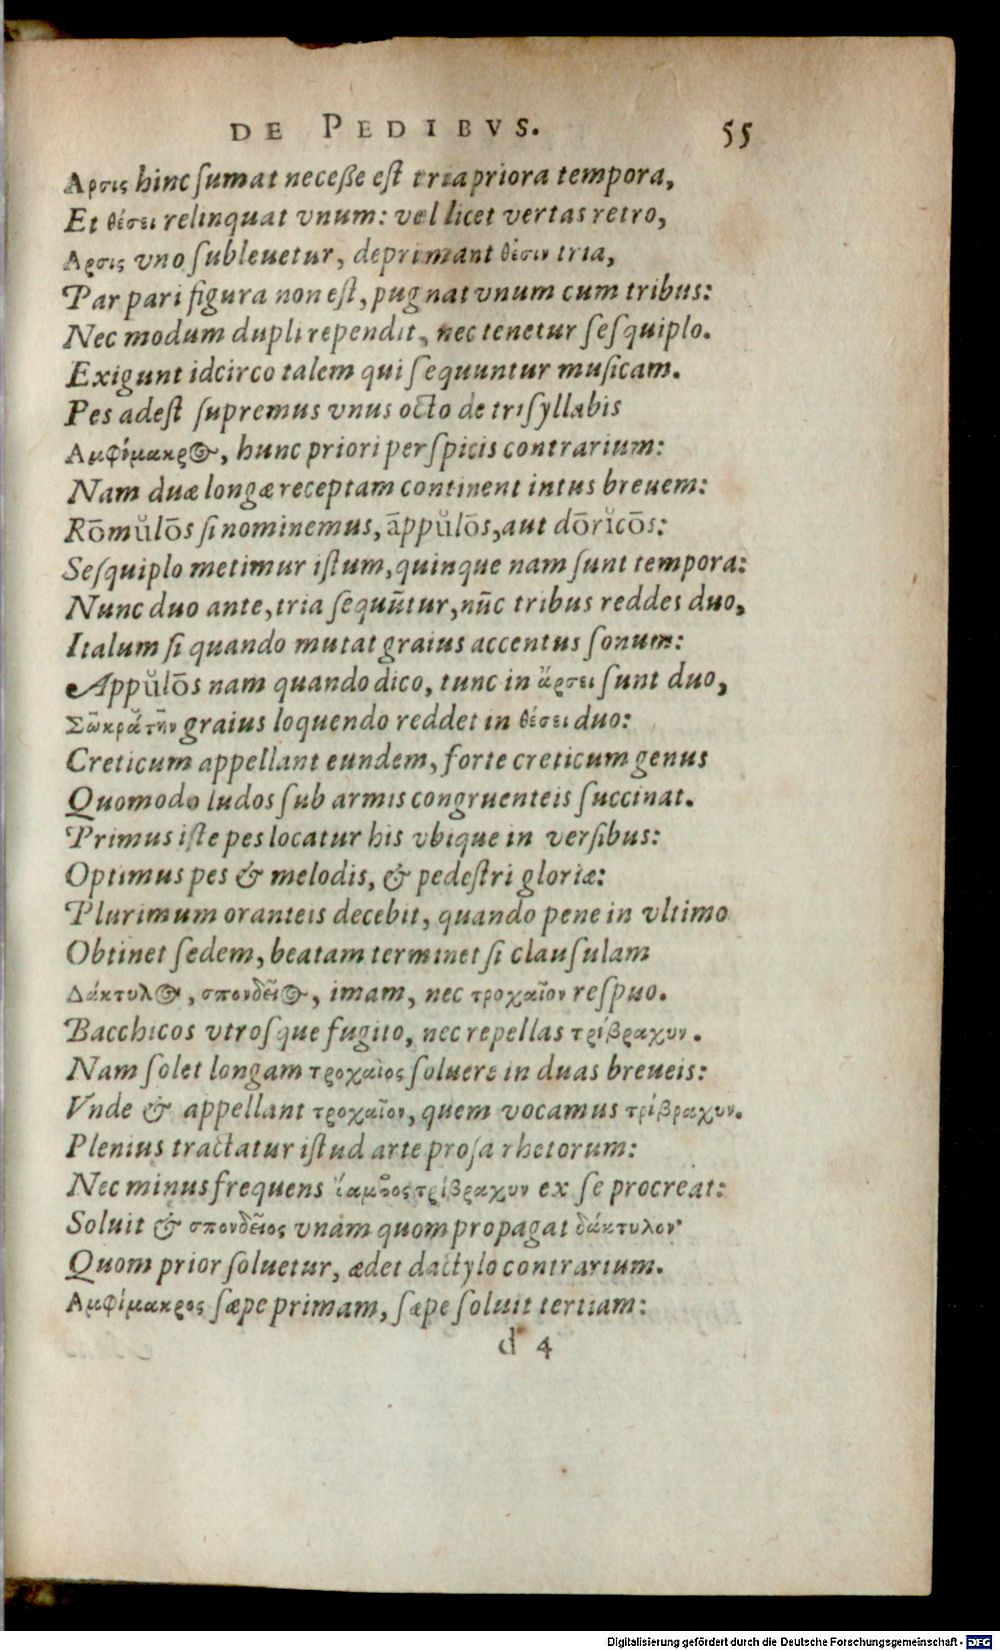 DE PEDIBVS. 55
Αρσις hinc ſumat neceße eſt tria priora tempora,
Et θέσει relinquat vnum: vel licet vertas retro,
Αρσις vno ſubleuetur, deprimant θέσιν tria,
Par pari figura non eſt, pugnat vnum cum tribus:
Nec modum dupli rependit, nec tenetur ſeſquiplo.
Exigunt idcirco talem qui ſequuntur muſicam.
Pes adeſt ſupremus vnus octo de triſyllabis
Αμφίμακρος, hunc priori perſpicis contrarium:
Nam duæ longæ receptam continent intus breuem:
Rōmŭlōs ſi nominemus, āppŭlōs, aut dōrĭcōs:
Seſquiplo metimur iſtum, quinque nam ſunt tempora:
Nunc duo ante, tria ſequũtur, nũc tribus reddes duo,
Italum ſi quando mutat graius accentus ſonum:
Appŭlōs nam quando dico, tunc in ἄρσει ſunt duo,
Σωκράτην graius loquendo reddet in θέσει duo:
Creticum appellant eundem, forte creticum genus
Quomodo ludos ſub armis congruenteis ſuccinat.
Primus iſte pes locatur his vbique in verſibus:
Optimus pes & melodis, & pedeſtri gloriæ:
Plurimum oranteis decebit, quando pene in vltimo
Obtinet ſedem, beatam terminet ſi clauſulam
Δάκτυλος, σπονδεῖος, imam, nec τροχαῖον reſpuo.
Bacchicos vtroſque fugito, nec repellas τρίβραχυν.
Nam ſolet longam τροχαῖος ſoluere in duas breueis:
Vnde & appellant τροχαῖον, quem vocamus τρίβραχυν.
Plenius tractatur iſtud arte proſa rhetorum:
Nec minus frequens ἴαμβος τρίβραχυν ex ſe procreat:
Soluit & σπονδεῖος vnam quom propagat δάκτυλον·
Quom prior ſoluetur, ædet dactylo contrarium.
Αμφίμακρος ſæpe primam, ſæpe ſoluit tertiam:
d 4
Digitalisierung gefördert durch die Deutsche Forschungsgemeinschaft - DFG